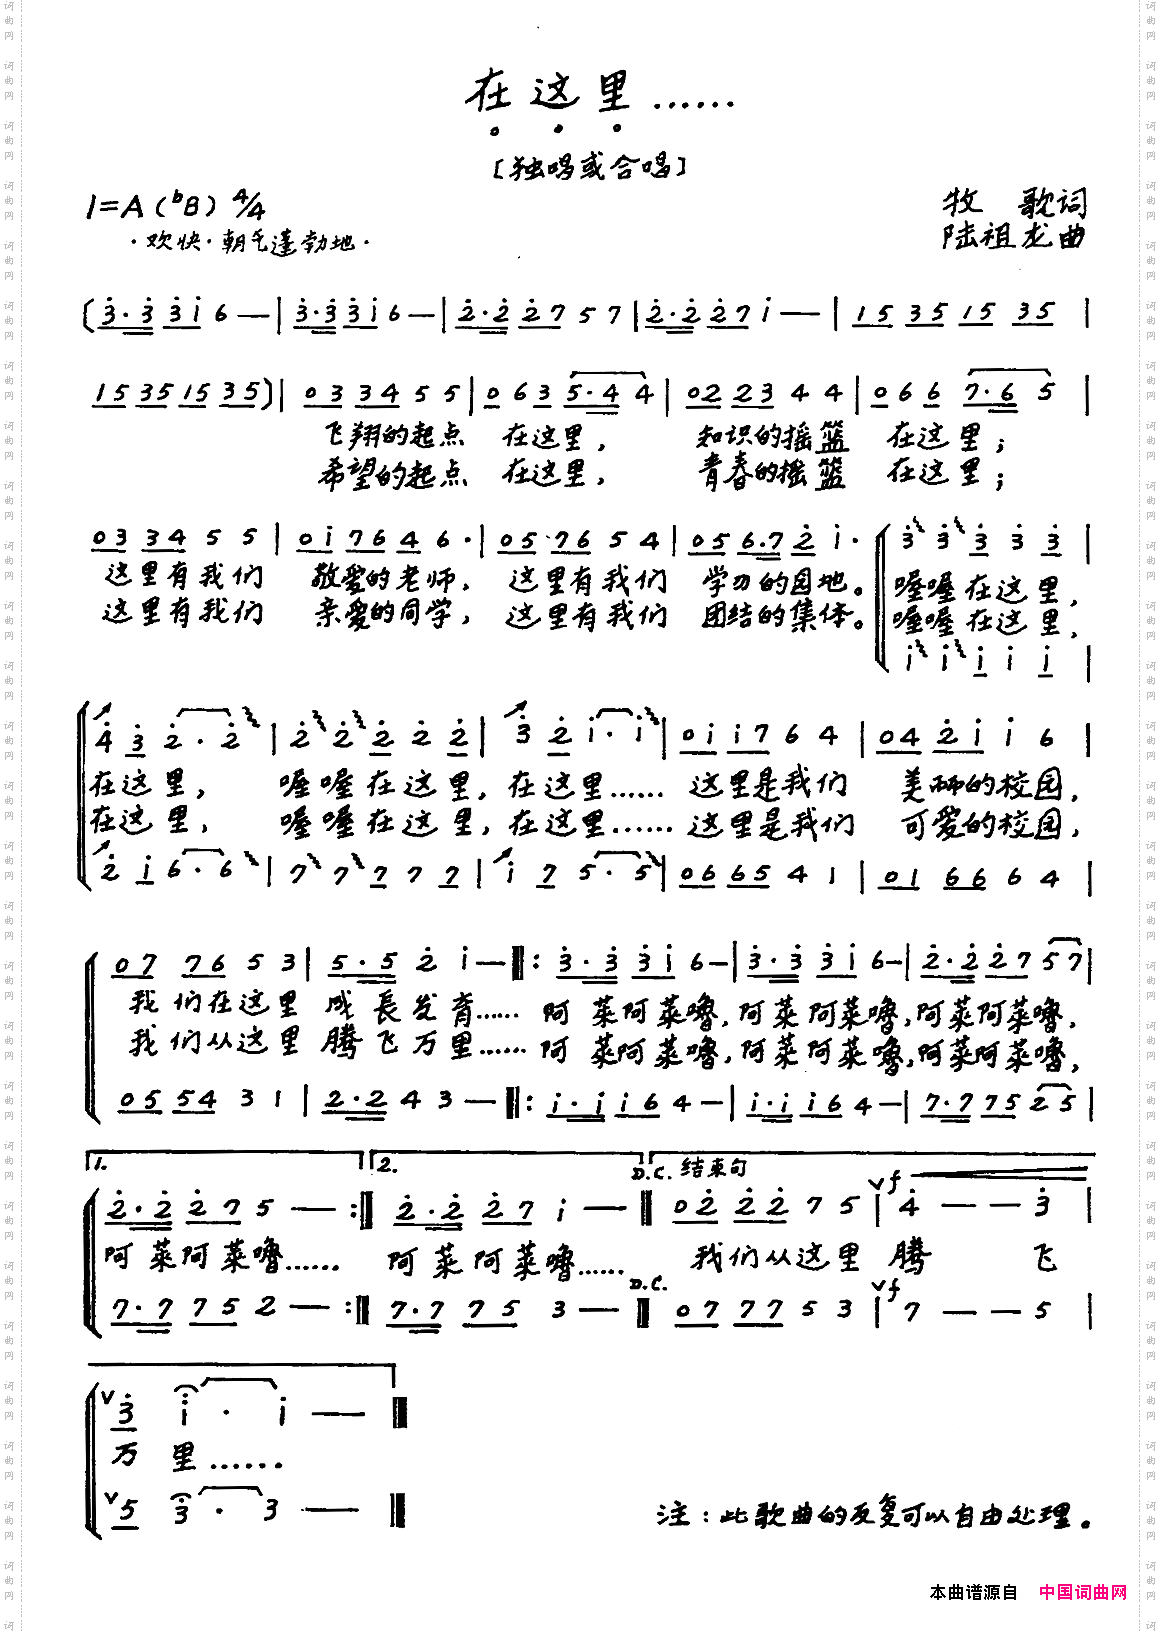 在这里……
[独唱或合唱]
1=A(ᵇB) 4/4
牧 歌词
·欢快·朝气蓬勃地·
陆祖龙曲
(3·3 31 6 — | 3·3 31 6 — | 2·2 27 5 7 | 2·2 27 1 — | 15 35 15 35 |
15 35 15 35) | 03 34 5 5 | 0 6 3 5·4 4 | 02 23 4 4 | 0 6 6 7·6 5 |
飞翔的起点 在这里, 知识的摇篮 在这里;
希望的起点 在这里, 青春的摇篮 在这里;
03 34 5 5 | 01 76 4 6· | 05 76 5 4 | 05 6·7 2 1· | 3 3 3 3 3 |
这里有我们 敬爱的老师, 这里有我们 学习的园地。 喔喔在这里,
这里有我们 亲爱的同学, 这里有我们 团结的集体。 喔喔在这里,
1 1 1 1 1 |
4 3 2·2 | 2 2 2 2 2 | 3 2 1·1 | 01 17 6 4 | 04 21 1 6 |
在这里, 喔喔在这里, 在这里…… 这里是我们 美丽的校园,
在这里, 喔喔在这里, 在这里…… 这里是我们 可爱的校园,
2 1 6·6 | 7 7 7 7 7 | 1 7 5·5 | 06 65 4 1 | 01 66 6 4 |
07 76 5 3 | 5·5 2 1 — ‖: 3·3 31 6 — | 3·3 31 6 — | 2·2 27 57 |
我们在这里 成長发育…… 阿莱阿莱噜,阿莱阿莱噜,阿莱阿莱噜,
我们从这里 腾飞万里…… 阿莱阿莱噜,阿莱阿莱噜,阿莱阿莱噜,
05 54 3 1 | 2·2 4 3 — ‖: 1·1 16 4 — | 1·1 16 4 — | 7·7 75 25 |
1. 2. D.C. 结束句
2·2 27 5 — :‖ 2·2 27 1 — ‖ 02 22 7 5 | ∨f 4 — — 3 |
阿莱阿莱噜…… 阿莱阿莱噜…… 我们从这里 腾 飞
D.C.
7·7 75 2 — :‖ 7·7 75 3 — ‖ 07 77 5 3 | ∨f 7 — — 5 |
∨3 1 · 1 — ‖
万 里……
∨5 3 · 3 — ‖
注:此歌曲的反复可以自由处理。
本曲谱源自 中国词曲网